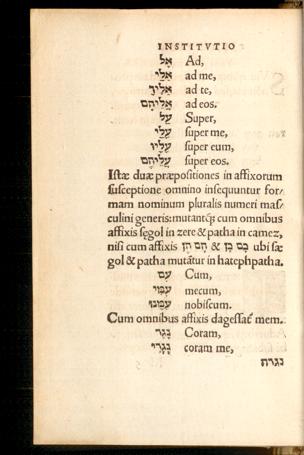 INSTITVTIO
אֶל Ad,
אֵלַי ad me,
אֵלֶיךָ ad te,
אֲלֵיהֶם ad eos.
עַל Super,
עָלַי super me,
עָלָיו super eum,
עֲלֵיהֶם super eos.
Istæ duæ præpositiones in affixorum
susceptione omnino insequuntur for-
mam nominum pluralis numeri mas-
culini generis: mutantq; cum omnibus
affixis sęgol in zere & patha in camez,
nisi cum affixis כֶם כֶן & הֶם הֶן ubi sæ
gol & patha mutãtur in hatephpatha.
עִם Cum,
עִמִּי mecum,
עִמָּנוּ nobiscum.
Cum omnibus affixis dagessat̃ mem.
נֶגֶד Coram,
נֶגְדִּי coram me,
נגדה